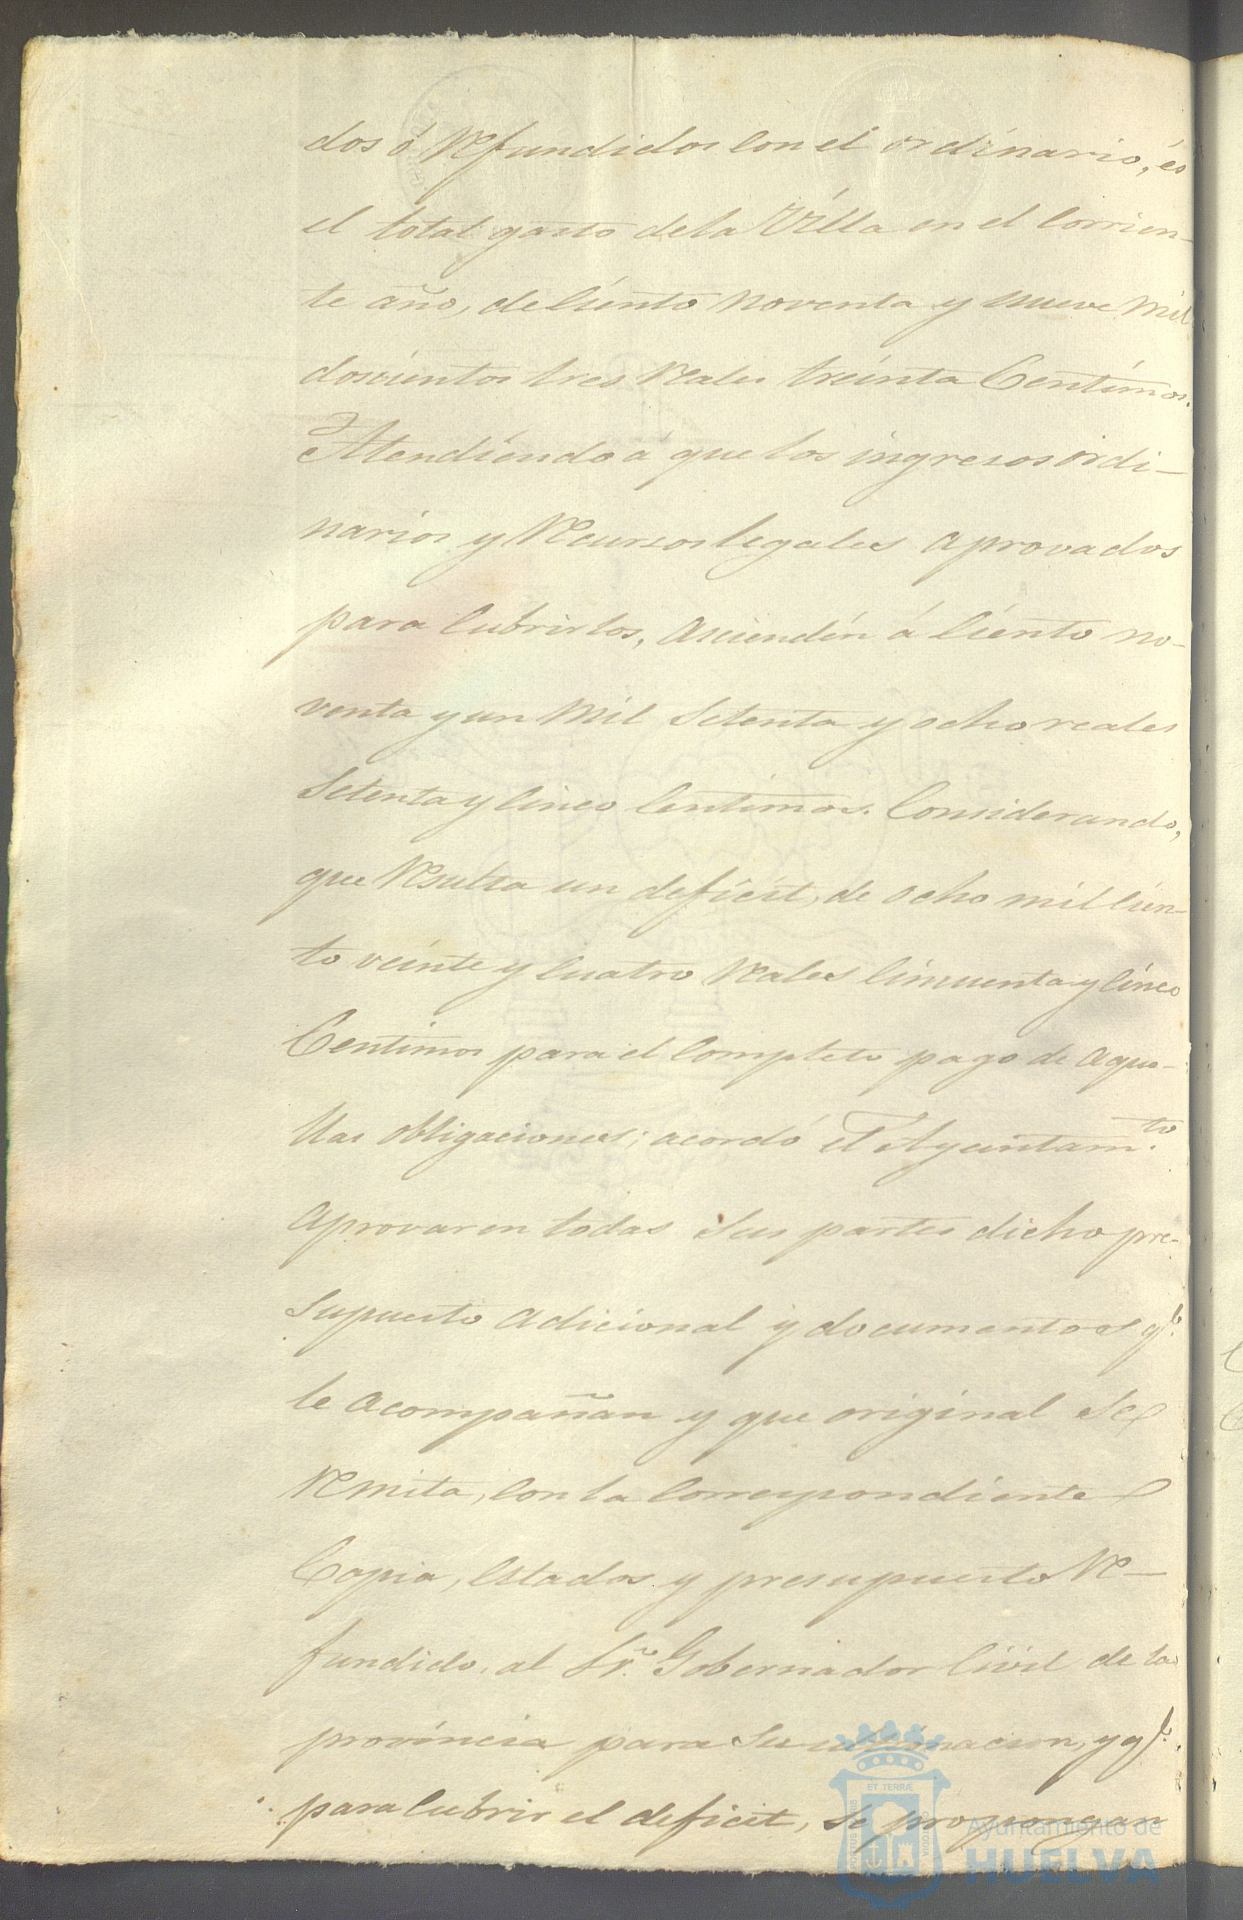 dos ó Refundidos con el ordinario, és
el total gasto de la Villa en el corrien-
te año, de ciento noventa y nueve mil
doscientos tres Reales treinta Centimos.
Atendiendo á que los ingresos ordi-
narios y Recursos legales aprovados
para cubrirlos, ascienden á ciento no-
venta y un mil setenta y ocho reales
setenta y cinco centimos. Considerando,
que Resulta un deficit, de ocho mil cien-
to veinte y cuatro Reales cincuenta y cinco
Centimos para el completo pago de aque-
llas obligaciones; acordó el Ayuntam.to
aprovar en todas sus partes dicho pre-
supuesto adicional y documentos q.e
le acompañan y que original se
Remita, con la correspondiente
Copia, estados y presupuesto Re-
fundido, al Sr. Gobernador Civil de la
provincia para su ultimacion, y q.e
para cubrir el deficit, se propongan
ET TERRÆ
Ayuntamiento de
HUELVA